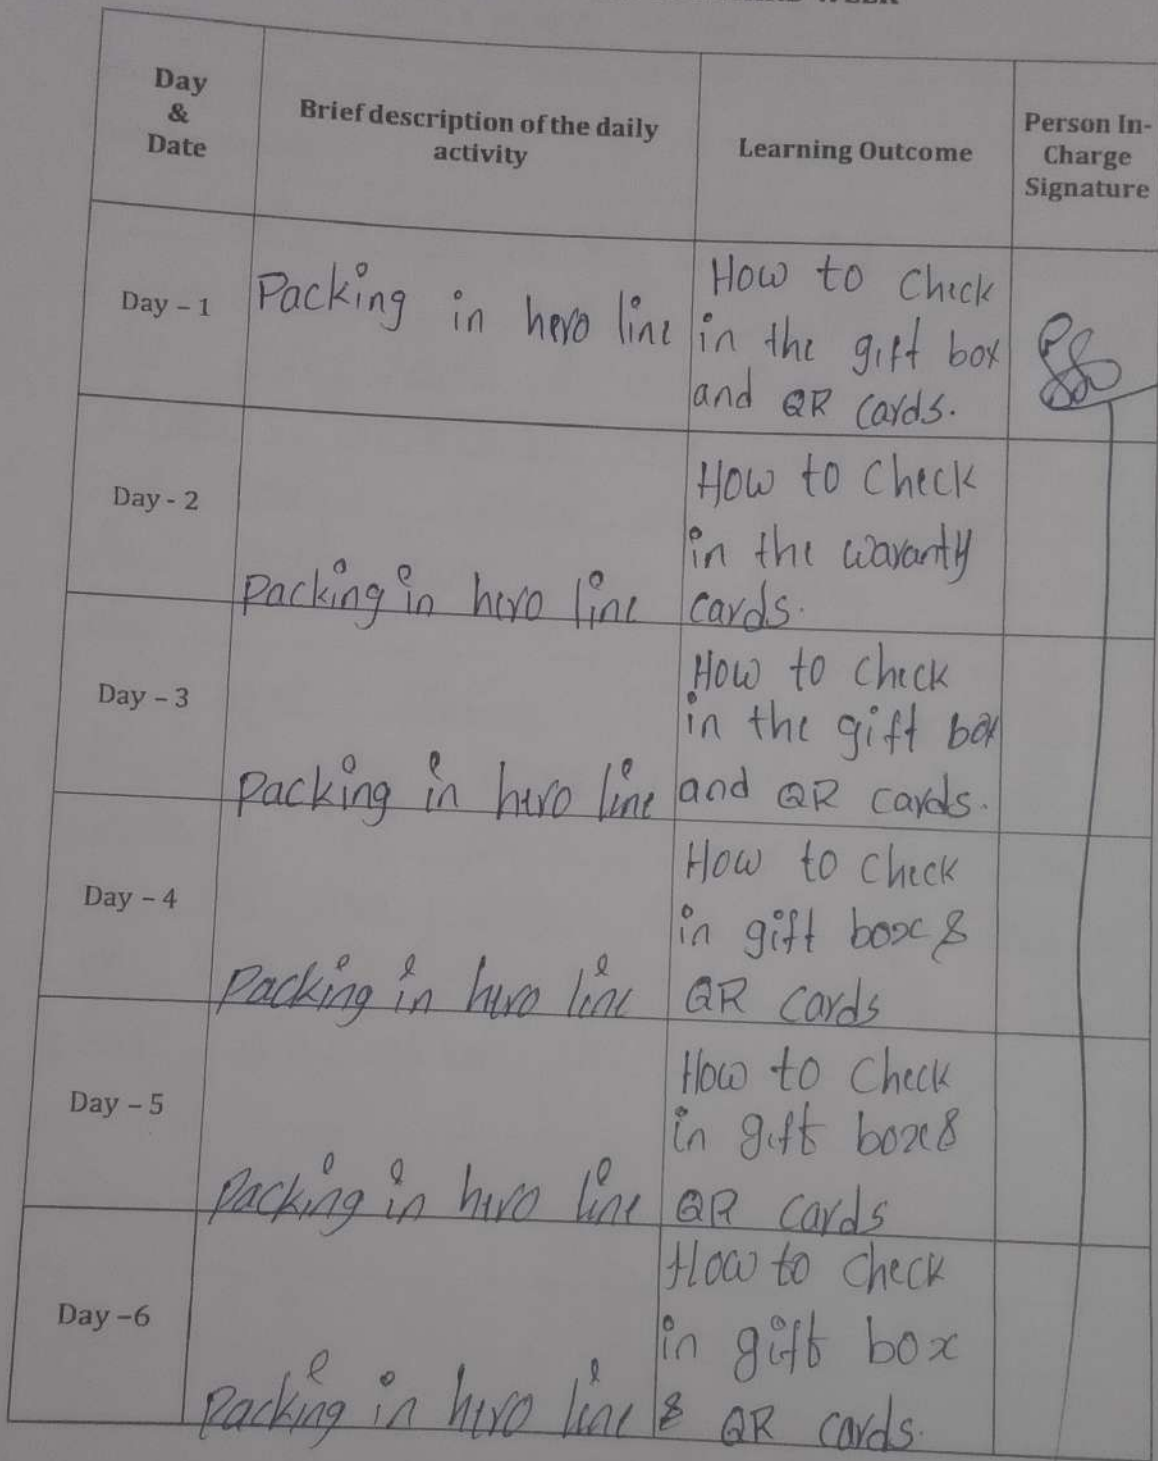 WEEK
Day
&
Date
Brief description of the daily
activity
Learning Outcome
Person In-
Charge
Signature
Day – 1
Packing in hero line
How to check
in the gift box
and QR cards.
Day - 2
Packing in hero line
How to check
in the waranty
cards.
Day – 3
Packing in hero line
How to check
in the gift box
and QR cards.
Day – 4
Packing in hero line
How to check
in gift box &
QR cards
Day – 5
Packing in hero line
How to check
in gift box &
QR cards
Day –6
Packing in hero line
How to check
in gift box
& QR cards.